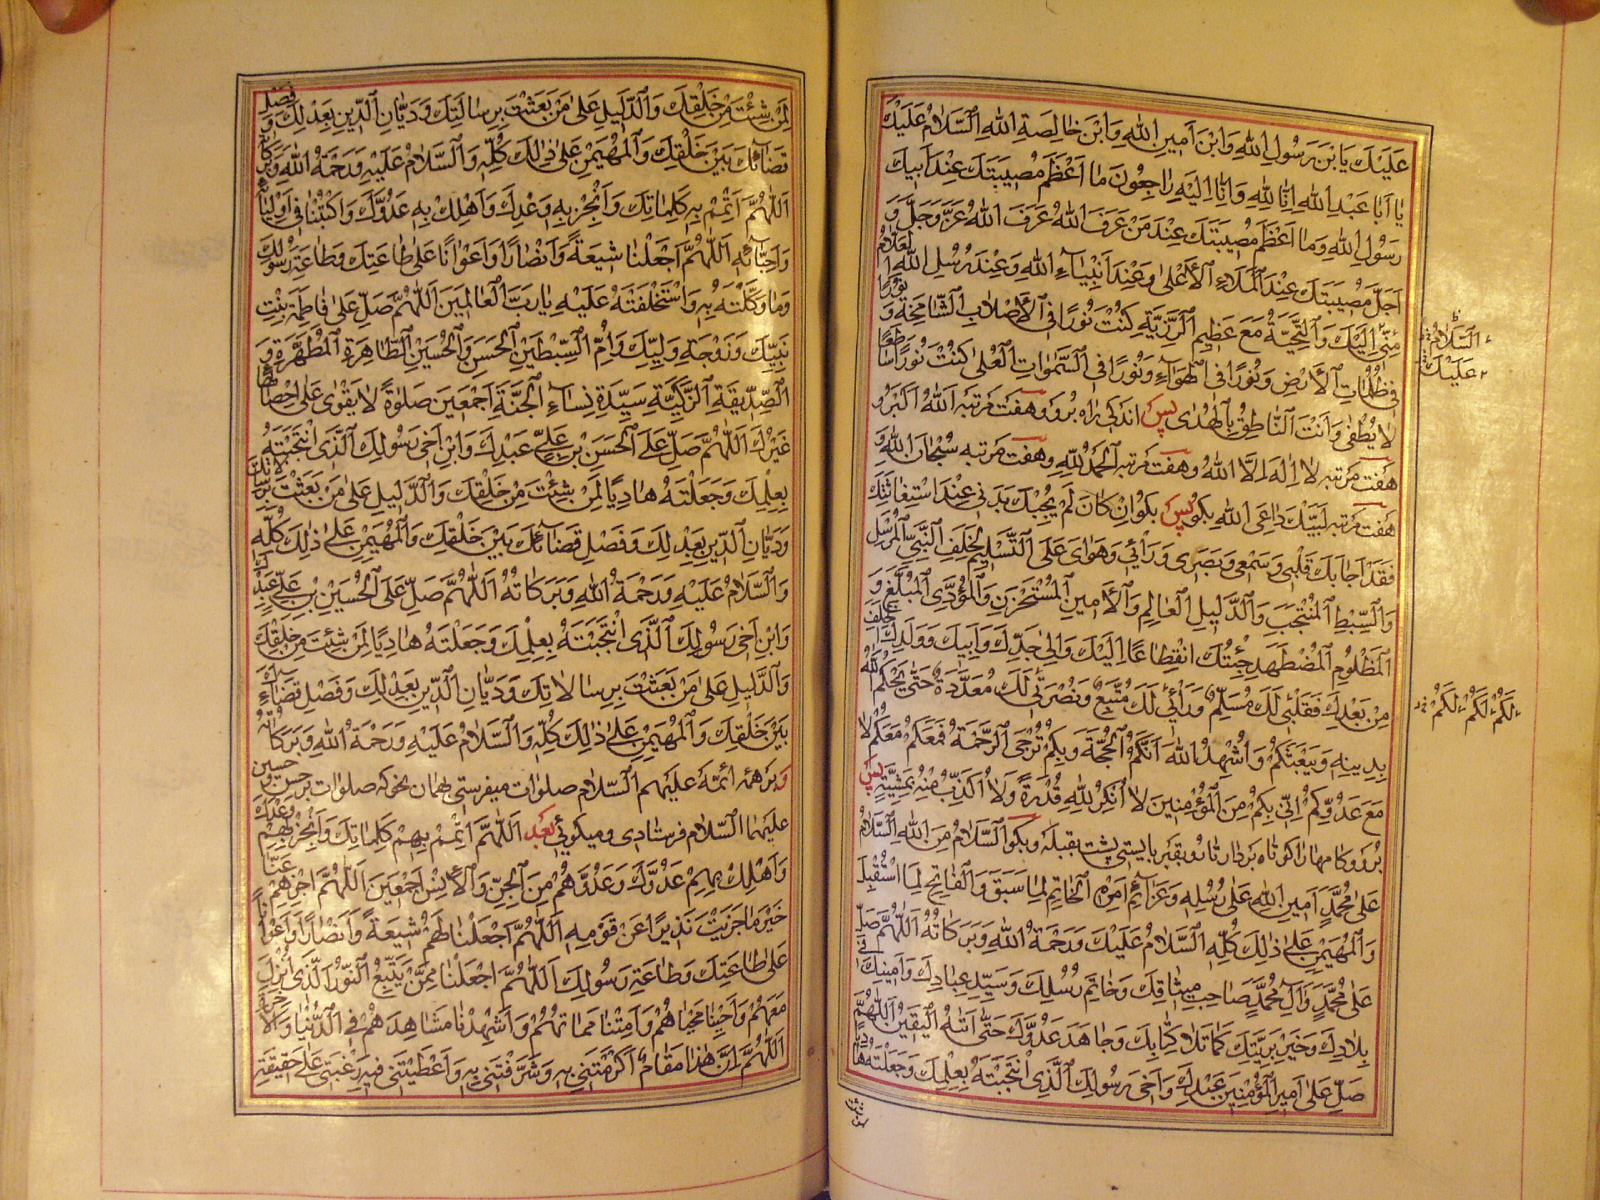 عَلَيْكَ يَابْنَ رَسُولِ اللهِ وَابْنَ اَمِينِ اللهِ وَابْنَ خَالِصَةِ اللهِ اَلسَّلَامُ عَلَيْكَ
يَا اَبَا عَبْدِ اللهِ اِنَّا لِلهِ وَاِنَّا اِلَيْهِ رَاجِعُونَ مَا اَعْظَمَ مُصِيبَتَكَ عِنْدَ اَبِيكَ
رَسُولِ اللهِ وَمَا اَعْظَمَ مُصِيبَتَكَ عِنْدَ مَنْ عَرَفَ اللهَ عَزَّ وَجَلَّ وَ
اَجَلَّ مُصِيبَتَكَ عِنْدَ الْمَلَاءِ الْاَعْلٰى وَعِنْدَ اَنْبِيَاءِ اللهِ وَعِنْدَ رُسُلِ اللهِ اَلسَّلَامُ
مِنّى اِلَيْكَ وَالتَّحِيَّةُ مَعَ عَظِيمِ الرَّزِيَّةِ كُنْتَ نُورًا فِى الْاَصْلَابِ الشَّامِخَةِ وَ نُورًا
فِى ظُلُمَاتِ الْاَرْضِ وَنُورًا فِى الْهَوَاءِ وَنُورًا فِى السَّمٰوَاتِ الْعُلٰى كُنْتَ نُورًا سَاطِعًا
لَا يُطْفٰى وَاَنْتَ النَّاطِقُ بِالْهُدٰى پس اندکی راه برو و هفت مرتبه اَللهُ اَكْبَرُ و
هفت مرتبه لَا اِلٰهَ اِلَّا اللهُ و هفت مرتبه اَلْحَمْدُ لِلهِ و هفت مرتبه سُبْحَانَ اللهِ و
هفت مرتبه لَبَّيْكَ دَاعِىَ اللهِ بکو پس بکو اِنْ كَانَ لَمْ يُجِبْكَ بَدَنِى عِنْدَ اسْتِغَاثَتِكَ
فَقَدْ اَجَابَكَ قَلْبِى وَسَمْعِى وَبَصَرِى وَرَاْئِى وَهَوَاىَ عَلَى التَّسْلِيمِ لِخَلَفِ النَّبِىِّ الْمُرْسَلِ
وَالسِّبْطِ الْمُنْتَجَبِ وَالدَّلِيلِ الْعَالِمِ وَالْاَمِينِ الْمُسْتَخْزَنِ وَالْمُؤَدِّى الْمُبَلِّغِ وَ
الْمَظْلُومِ الْمُضْطَهَدِ جِئْتُكَ انْقِطَاعًا اِلَيْكَ وَاِلٰى جَدِّكَ وَاَبِيكَ وَوَلَدِكَ الْخَلَفِ
مِنْ بَعْدِكَ فَقَلْبِى لَكَ مُسَلِّمٌ وَرَاْيِى لَكَ مُتَّبِعٌ وَنُصْرَتِى لَكَ مُعَدَّةٌ حَتّٰى يَحْكُمَ اللهُ
بِدِينِهِ وَيَبْعَثَكُمْ وَاُشْهِدُ اللهَ اَنَّكُمُ الْحُجَّةُ وَبِكُمْ تُرْجَى الرَّحْمَةُ فَمَعَكُمْ مَعَكُمْ لَا
مَعَ عَدُوِّكُمْ اِنِّى بِكُمْ مِنَ الْمُؤْمِنِينَ لَا اُنْكِرُ لِلهِ قُدْرَةً وَلَا اُكَذِّبُ مِنْهُ بِمَشِيَّةٍ پس
برو و کامها را کوتاه بردار تا نزد قبر بایستی پشت بقبله و بکو اَلسَّلَامُ مِنَ اللهِ اَلسَّلَامُ
عَلٰى مُحَمَّدٍ اَمِينِ اللهِ عَلٰى رُسُلِهِ وَعَزَائِمِ اَمْرِهِ الْخَاتِمِ لِمَا سَبَقَ وَالْفَاتِحِ لِمَا اسْتُقْبِلَ
وَالْمُهَيْمِنِ عَلٰى ذٰلِكَ كُلِّهِ اَلسَّلَامُ عَلَيْكَ وَرَحْمَةُ اللهِ وَبَرَكَاتُهُ اَللّٰهُمَّ صَلِّ
عَلٰى مُحَمَّدٍ وَآلِ مُحَمَّدٍ صَاحِبِ مِيثَاقِكَ وَخَاتِمِ رُسُلِكَ وَسَيِّدِ عِبَادِكَ وَاَمِينِكَ فِى
بِلَادِكَ وَخَيْرِ بَرِيَّتِكَ كَمَا تَلَا كِتَابَكَ وَجَاهَدَ عَدُوَّكَ حَتّٰى اَتٰيهُ الْيَقِينُ اَللّٰهُمَّ
صَلِّ عَلٰى اَمِيرِ الْمُؤْمِنِينَ عَبْدِكَ وَاَخِى رَسُولِكَ الَّذِى انْتَجَبْتَهُ بِعِلْمِكَ وَجَعَلْتَهُ هَادِيًا
اَلسَّلَامُ
عَلَيْكَ
لَكُمْ لَكُمْ لَكُمْ
لِمَنْ شِئْتَ مِنْ خَلْقِكَ وَالدَّلِيلِ عَلٰى مَنْ بَعَثْتَ بِرِسَالَتِكَ وَدَيَّانِ الدِّينِ بِعَدْلِكَ وَ فَصْلِ
قَضَائِكَ بَيْنَ خَلْقِكَ وَالْمُهَيْمِنِ عَلٰى ذٰلِكَ كُلِّهِ وَالسَّلَامُ عَلَيْهِ وَرَحْمَةُ اللهِ وَبَرَكَاتُهُ
اَللّٰهُمَّ اَتْمِمْ بِهِ كَلِمَاتِكَ وَاَنْجِزْ بِهِ وَعْدَكَ وَاَهْلِكْ بِهِ عَدُوَّكَ وَاكْتُبْنَا فِى اَوْلِيَائِهِ
وَاَحِبَّائِهِ اَللّٰهُمَّ اجْعَلْنَا شِيعَةً وَاَنْصَارًا وَاَعْوَانًا عَلٰى طَاعَتِكَ وَطَاعَةِ رَسُولِكَ
وَمَا وَكَّلْتَهُ بِهِ وَاسْتَخْلَفْتَهُ عَلَيْهِ يَا رَبَّ الْعَالَمِينَ اَللّٰهُمَّ صَلِّ عَلٰى فَاطِمَةَ بِنْتِ
نَبِيِّكَ وَزَوْجَةِ وَلِيِّكَ وَاُمِّ السِّبْطَيْنِ الْحَسَنِ وَالْحُسَيْنِ الطَّاهِرَةِ الْمُطَهَّرَةِ وَ
الصِّدِّيقَةِ الزَّكِيَّةِ سَيِّدَةِ نِسَاءِ الْجَنَّةِ اَجْمَعِينَ صَلٰوةً لَا يَقْوٰى عَلٰى اِحْصَائِهَا
غَيْرُكَ اَللّٰهُمَّ صَلِّ عَلَى الْحَسَنِ بْنِ عَلِىٍّ عَبْدِكَ وَابْنِ اَخِى رَسُولِكَ الَّذِى انْتَجَبْتَهُ
بِعِلْمِكَ وَجَعَلْتَهُ هَادِيًا لِمَنْ شِئْتَ مِنْ خَلْقِكَ وَالدَّلِيلِ عَلٰى مَنْ بَعَثْتَ بِرِسَالَاتِكَ
وَدَيَّانِ الدِّينِ بِعَدْلِكَ وَفَصْلِ قَضَائِكَ بَيْنَ خَلْقِكَ وَالْمُهَيْمِنِ عَلٰى ذٰلِكَ كُلِّهِ
وَالسَّلَامُ عَلَيْهِ وَرَحْمَةُ اللهِ وَبَرَكَاتُهُ اَللّٰهُمَّ صَلِّ عَلَى الْحُسَيْنِ بْنِ عَلِىٍّ عَبْدِكَ
وَابْنِ اَخِى رَسُولِكَ الَّذِى انْتَجَبْتَهُ بِعِلْمِكَ وَجَعَلْتَهُ هَادِيًا لِمَنْ شِئْتَ مِنْ خَلْقِكَ
وَالدَّلِيلِ عَلٰى مَنْ بَعَثْتَ بِرِسَالَاتِكَ وَدَيَّانِ الدِّينِ بِعَدْلِكَ وَفَصْلِ قَضَاءِ
بَيْنَ خَلْقِكَ وَالْمُهَيْمِنِ عَلٰى ذٰلِكَ كُلِّهِ وَالسَّلَامُ عَلَيْهِ وَرَحْمَةُ اللهِ وَبَرَكَاتُهُ
و بر همهٔ ائمّه علیهم السّلام صلوات میفرستی بهمان نحو که صلوات بر حسن و حسین
علیهما السّلام فرستادی و میکوئی بَعْد اَللّٰهُمَّ اَتْمِمْ بِهِمْ كَلِمَاتِكَ وَاَنْجِزْ بِهِمْ وَعْدَكَ
وَاَهْلِكْ بِهِمْ عَدُوَّكَ وَعَدُوَّهُمْ مِنَ الْجِنِّ وَالْاِنْسِ اَجْمَعِينَ اَللّٰهُمَّ اجْزِهِمْ عَنَّا
خَيْرَ مَا جَزَيْتَ نَذِيرًا عَنْ قَوْمِهِ اَللّٰهُمَّ اجْعَلْنَا لَهُمْ شِيعَةً وَاَنْصَارًا وَاَعْوَانًا
عَلٰى طَاعَتِكَ وَطَاعَةِ رَسُولِكَ اَللّٰهُمَّ اجْعَلْنَا مِمَّنْ يَتَّبِعُ النُّورَ الَّذِى اُنْزِلَ
مَعَهُمْ وَاَحْيِنَا مَحْيَاهُمْ وَاَمِتْنَا مَمَاتَهُمْ وَاَشْهِدْنَا مَشَاهِدَهُمْ فِى الدُّنْيَا وَالْآخِرَةِ
اَللّٰهُمَّ اِنَّ هٰذَا مَقَامٌ اَكْرَمْتَنِى بِهِ وَشَرَّفْتَنِى بِهِ وَاَعْطَيْتَنِى فِيهِ رَغْبَتِى عَلٰى حَقِيقَةِ